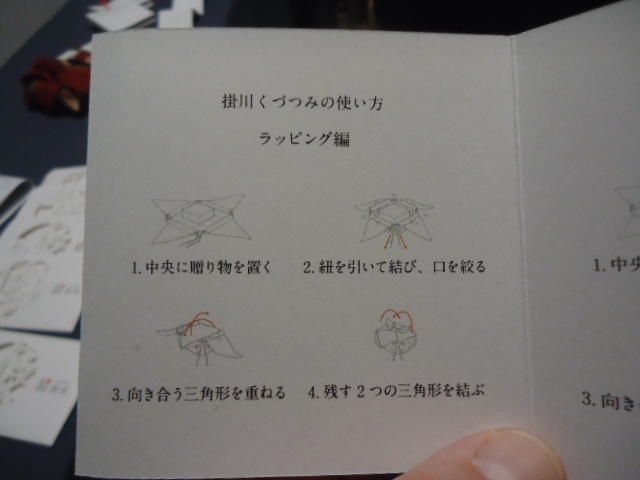 掛川くづつみの使い方
ラッピング編
1.中央に贈り物を置く
2.紐を引いて結び、口を絞る
3.向き合う三角形を重ねる
4.残す2つの三角形を結ぶ
1.中央
3.向き